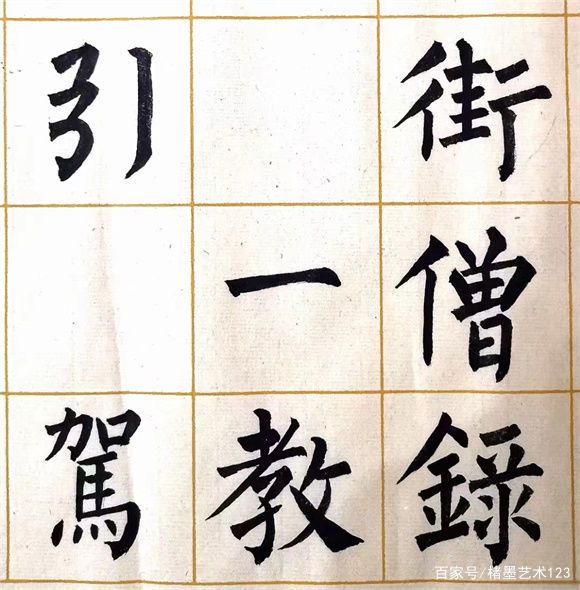 街僧錄
一教
引駕
百家号/楮墨艺术123